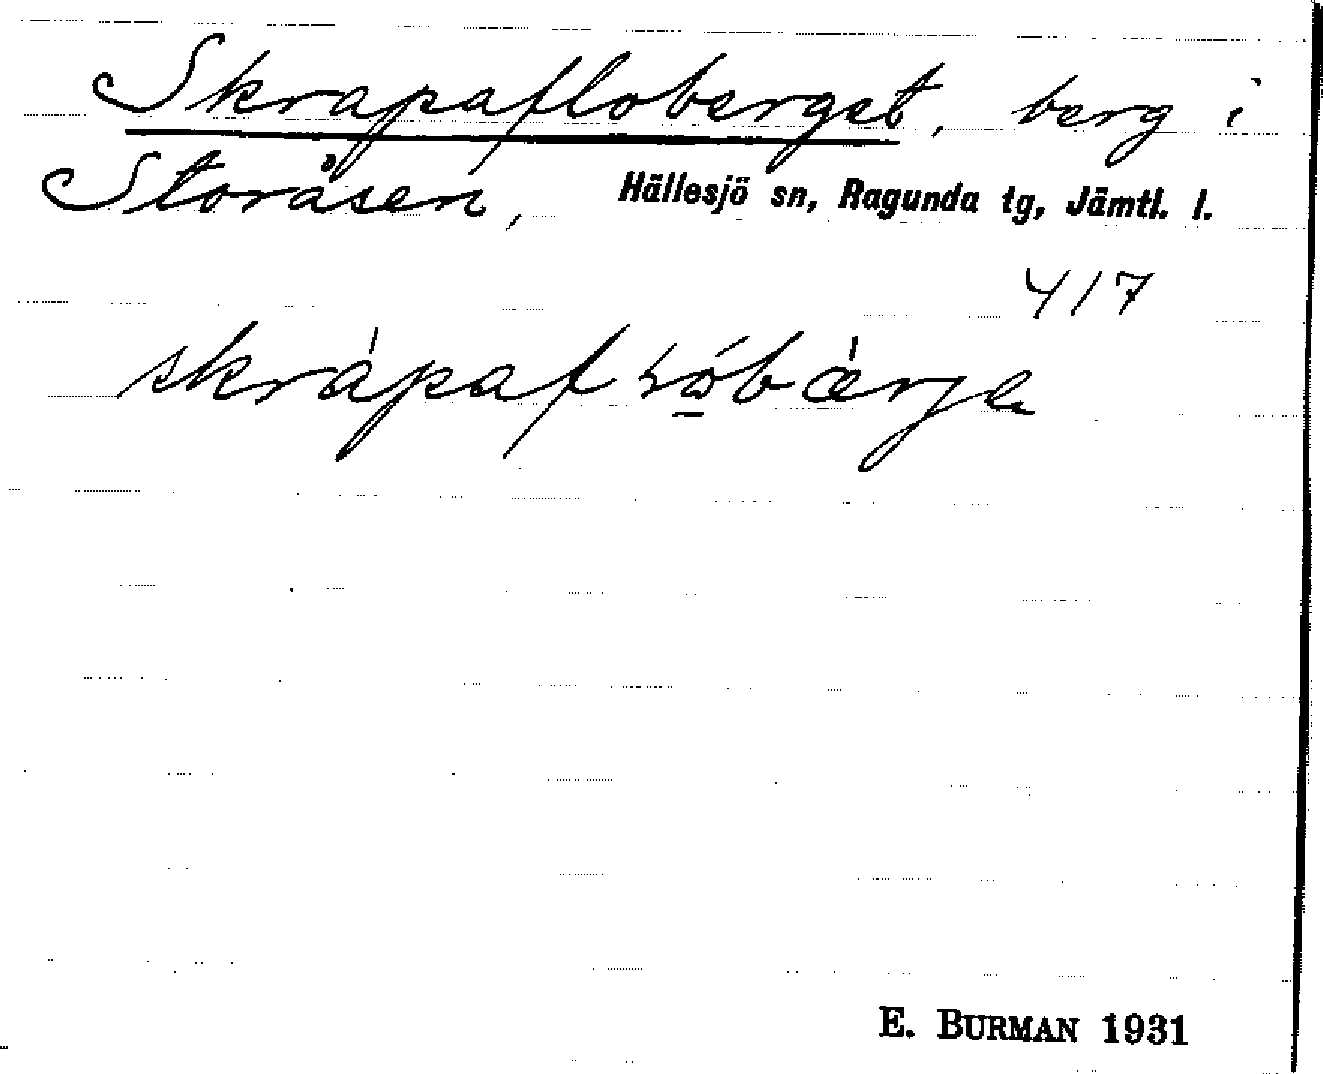 Skrapafloberget, berg i
Storåsen, Hällesjö sn, Ragunda tg, Jämtl. l.
417
E. BURMAN 1931